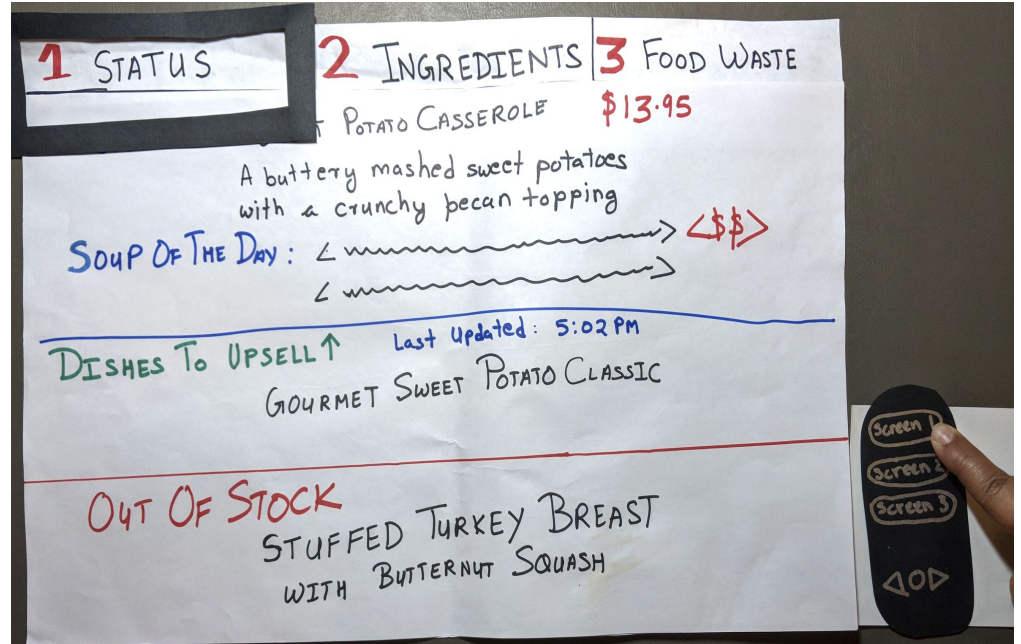 1 STATUS
2 INGREDIENTS
3 FOOD WASTE
POTATO CASSEROLE $13.95
A buttery mashed sweet potatoes
with a crunchy pecan topping
SOUP OF THE DAY: <$$>
DISHES TO UPSELL↑ Last Updated: 5:02 PM
GOURMET SWEET POTATO CLASSIC
OUT OF STOCK
STUFFED TURKEY BREAST
WITH BUTTERNUT SQUASH
Screen 1
Screen 2
Screen 3